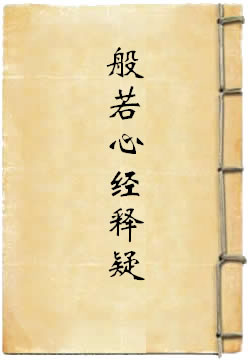 般若心经释疑